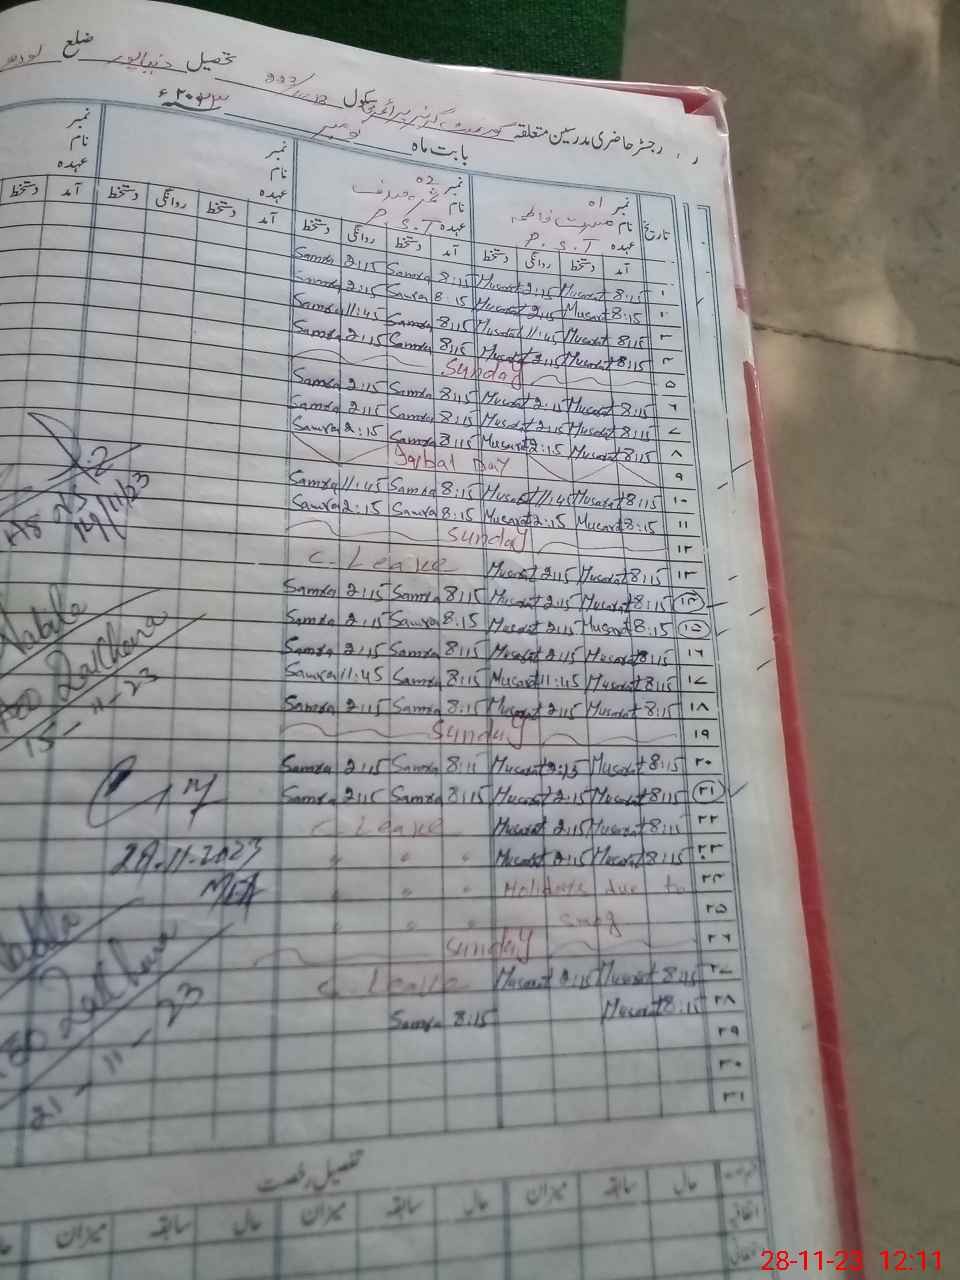 رجسٹر حاضری مدرسین متعلقہ گورنمنٹ گرلز پرائمری سکول تحصیل دنیاپور ضلع
بابت ماہ نومبر ۲۰۲۳ء
نمبر 01 نمبر 02 نمبر نمبر
نام مسرت فاطمہ نام نام نام
عہدہ P.S.T عہدہ P.S.T عہدہ عہدہ
تاریخ آمد دستخط روانگی دستخط آمد دستخط روانگی دستخط آمد دستخط روانگی دستخط آمد دستخط
۱ 8:15 Musarat 2:15 Musarat 8:15 Samra 2:15 Samra
۲ 8:15 Musarat 2:15 Musarat 8:15 Samra 2:15 Samra
۳ 8:15 Musarat 11:45 Musarat 8:15 Samra 11:45 Samra
۴ 8:15 Musarat 2:15 Musarat 8:15 Samra 2:15 Samra
۵ Sunday
۶ 8:15 Musarat 2:15 Musarat 8:15 Samra 2:15 Samra
۷ 8:15 Musarat 2:15 Musarat 8:15 Samra 2:15 Samra
۸ 8:15 Musarat 2:15 Musarat 8:15 Samra 2:15 Samra
۹ Iqbal Day
۱۰ 8:15 Musarat 11:45 Musarat 8:15 Samra 11:45 Samra
۱۱ 8:15 Musarat 2:15 Musarat 8:15 Samra 2:15 Samra
۱۲ Sunday
۱۳ 8:15 Musarat 2:15 Musarat C. Leave
۱۴ 8:15 Musarat 2:15 Musarat 8:15 Samra 2:15 Samra
۱۵ 8:15 Musarat 2:15 Musarat 8:15 Samra 2:15 Samra
۱۶ 8:15 Musarat 2:15 Musarat 8:15 Samra 2:15 Samra
۱۷ 8:15 Musarat 11:45 Musarat 8:15 Samra 11:45 Samra
۱۸ 8:15 Musarat 2:15 Musarat 8:15 Samra 2:15 Samra
۱۹ Sunday
۲۰ 8:15 Musarat 2:15 Musarat 8:15 Samra 2:15 Samra
۲۱ 8:15 Musarat 2:15 Musarat 8:15 Samra 2:15 Samra
۲۲ 8:15 Musarat 2:15 Musarat C. Leave
۲۳ 8:15 Musarat 2:15 Musarat " " "
۲۴ Holidays due to " " "
۲۵ smog " " "
۲۶ Sunday
۲۷ 8:15 Musarat 2:15 Musarat C. Leave
۲۸ 8:15 Musarat 8:15 Samra
۲۹
۳۰
۳۱
14/11/23
Nabila
15-11-23
21.11.2023
MEA
Nabila
21-11-23
تفصیل رخصت
حال سابقہ میزان حال سابقہ میزان حال سابقہ میزان
اتفاقیہ
28-11-23 12:11